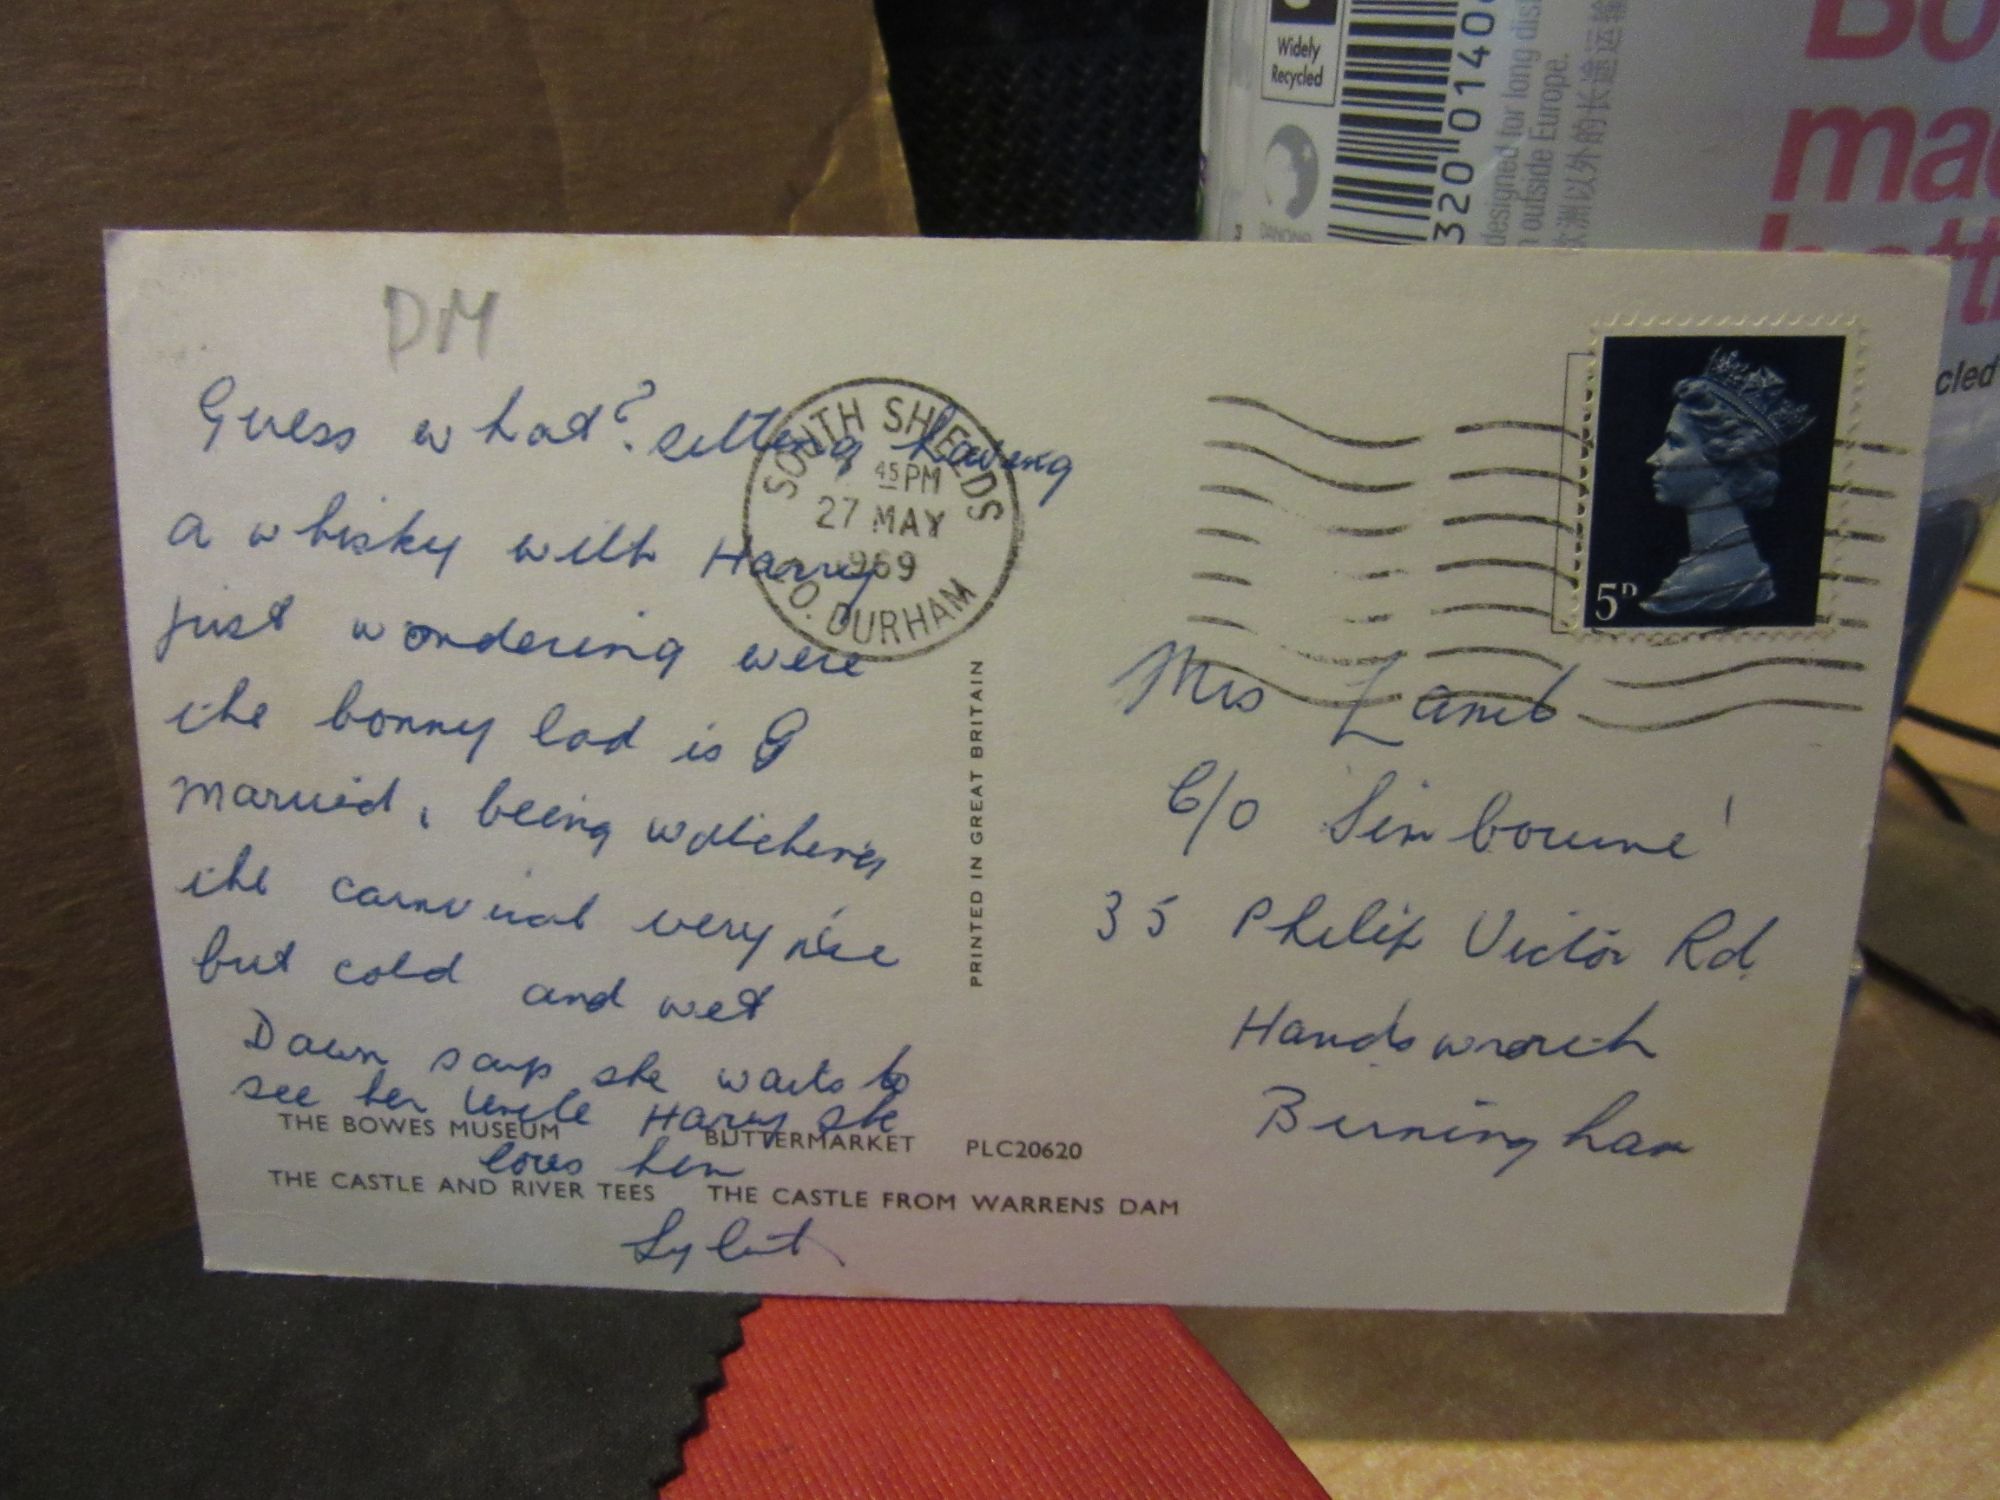 Widely
Recycled
320 0140
designed for long dis
outside Europe.
以外的长途运输
DANONE
Bo
mad
bott
cled
DM
SOUTH SHIELDS
45 PM
27 MAY
1969
CO. DURHAM
5D
Guess what? sitting having
a whisky with Harry
just wondering were
the bonny lad is G
Married, being watching
the carnival very nice
but cold and wet
Dawn says she wants to
see her Uncle Harry she
loves him
PRINTED IN GREAT BRITAIN
Mrs Lamb
C/O
35 Philip Victor Rd
Handsworth
Birmingham
THE BOWES MUSEUM BUTTERMARKET PLC20620
THE CASTLE AND RIVER TEES THE CASTLE FROM WARRENS DAM